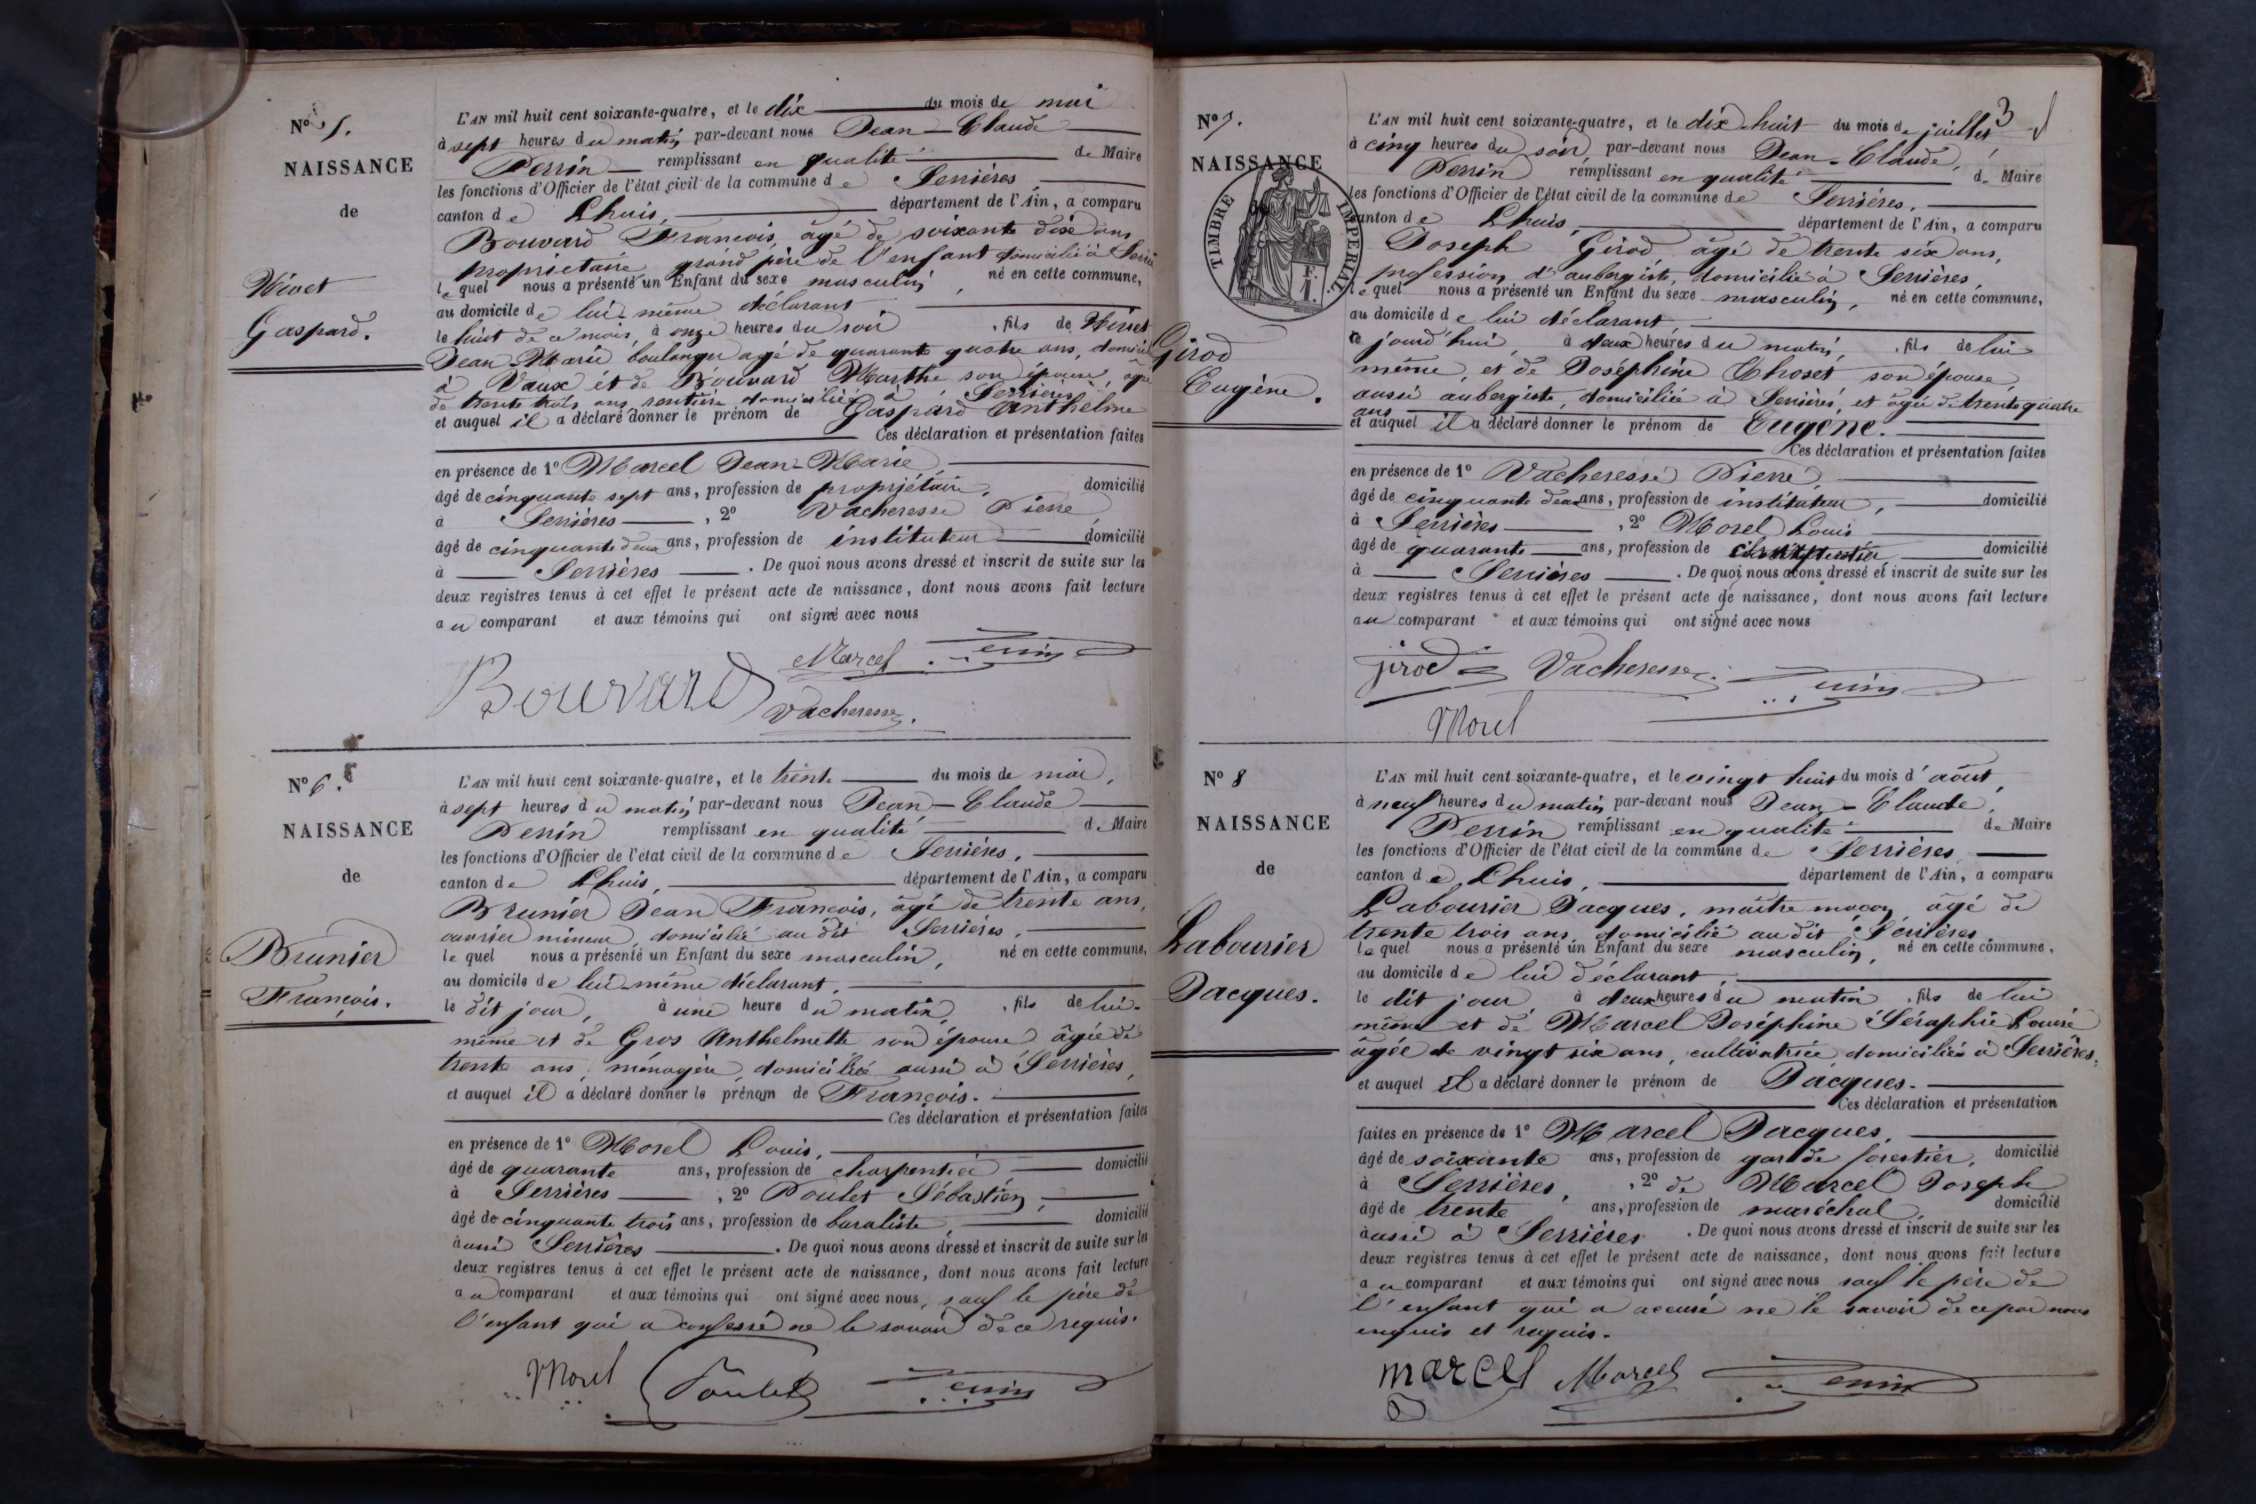 N° 5.
NAISSANCE
de
Gaspard.
L'AN mil huit cent soixante-quatre, et le dix du mois de mai
à sept heures du matin par-devant nous Jean-Claude
Perrin remplissant en qualité de Maire
les fonctions d'Officier de l'état civil de la commune de Serrières
canton de Lhuis, département de l'Ain, a comparu
Bouvard François, âgé de soixante dix ans
propriétaire grand père de l'enfant domicilié à
lequel nous a présenté un Enfant du sexe masculin, né en cette commune,
au domicile de lui-même déclarant
le huit de ce mois, à onze heures du soir, fils de
Jean-Marie boulanger agé de quarante quatre ans,
à Vaux et de Bouvard Marthe son épouse, agée
de trente trois ans rentière domiciliée à Serrières
et auquel il a déclaré donner le prénom de Gaspard Anthelme
Ces déclaration et présentation faites
en présence de 1° Marcel Jean-Marie,
âgé de cinquante sept ans, profession de propriétaire, domicilié
à Serrières, 2° Vacheresse Pierre,
âgé de cinquante deux ans, profession de instituteur domicilié
à Serrières. De quoi nous avons dressé et inscrit de suite sur les
deux registres tenus à cet effet le présent acte de naissance, dont nous avons fait lecture
au comparant et aux témoins qui ont signé avec nous
Marcel Perrin
Bouvard Vacheresse.
N° 6.
NAISSANCE
de
Brunier
François.
L'AN mil huit cent soixante-quatre, et le trente du mois de mai,
à sept heures du matin par-devant nous Jean-Claude
Perrin remplissant en qualité de Maire
les fonctions d'Officier de l'état civil de la commune de Serrières,
canton de Lhuis, département de l'Ain, a comparu
Brunier Jean François, âgé de trente ans,
ouvrier mineur, domicilié au dit Serrières,
lequel nous a présenté un Enfant du sexe masculin, né en cette commune,
au domicile de lui-même déclarant,
le dit jour, à une heure du matin, fils de lui-
même et de Gros Anthelmette son épouse âgée de
trente ans, ménagère, domiciliée aussi à Serrières,
et auquel il a déclaré donner le prénom de François.
Ces déclaration et présentation faites
en présence de 1° Morel Louis,
âgé de quarante ans, profession de charpentier domicilié
à Serrières, 2° Poulet Sébastien,
âgé de cinquante trois ans, profession de buraliste domicilié
aussi Serrières. De quoi nous avons dressé et inscrit de suite sur les
deux registres tenus à cet effet le présent acte de naissance, dont nous avons fait lecture
au comparant et aux témoins qui ont signé avec nous, sauf le père de
l'enfant qui a confessé ne le savoir de ce requis.
Morel Poulet Perrin
3
N° 7.
NAISSANCE
TIMBRE IMPÉRIAL
Girod
Eugène.
L'AN mil huit cent soixante-quatre, et le dix-huit du mois de juillet
à cinq heures du soir par-devant nous Jean-Claude,
Perrin remplissant en qualité de Maire
les fonctions d'Officier de l'état civil de la commune de Serrières,
canton de Lhuis, département de l'Ain, a comparu
Joseph Girod âgé de trente six ans,
profession d'aubergiste, domicilié à Serrières,
lequel nous a présenté un Enfant du sexe masculin, né en cette commune,
au domicile de lui déclarant,
ce jourd'hui, à deux heures du matin, fils de lui
même, et de Joséphine Choset son épouse,
aussi aubergiste, domiciliée à Serrières, et âgée de trente quatre
ans
et auquel il a déclaré donner le prénom de Eugène.
Ces déclaration et présentation faites
en présence de 1° Vacheresse Pierre,
âgé de cinquante deux ans, profession de instituteur, domicilié
à Serrières, 2° Morel Louis
âgé de quarante ans, profession de charpentier domicilié
à Serrières. De quoi nous avons dressé et inscrit de suite sur les
deux registres tenus à cet effet le présent acte de naissance, dont nous avons fait lecture
au comparant et aux témoins qui ont signé avec nous
girod Vacheresse Perrin
Morel
N° 8
NAISSANCE
de
Labourier
Jacques.
L'AN mil huit cent soixante-quatre, et le vingt huit du mois d'août,
à neuf heures du matin par-devant nous Jean-Claude,
Perrin remplissant en qualité de Maire
les fonctions d'Officier de l'état civil de la commune de Serrières
canton de Lhuis, département de l'Ain, a comparu
Labourier Jacques, maître maçon, âgé de
trente trois ans, domicilié au dit Serrières
lequel nous a présenté un Enfant du sexe masculin, né en cette commune,
au domicile de lui déclarant,
le dit jour à deux heures du matin, fils de lui
même et de Marcel Joséphine Séraphie Louise
âgée de vingt six ans, cultivatrice domiciliée à Serrières,
et auquel il a déclaré donner le prénom de Jacques.
Ces déclaration et présentation
faites en présence de 1° Marcel Jacques,
âgé de soixante ans, profession de garde forestier, domicilié
à Serrières, 2° de Marcel Joseph
âgé de trente ans, profession de maréchal, domicilié
aussi à Serrières. De quoi nous avons dressé et inscrit de suite sur les
deux registres tenus à cet effet le présent acte de naissance, dont nous avons fait lecture
au comparant et aux témoins qui ont signé avec nous sauf le père de
l'enfant qui a accusé ne le savoir de ce par nous
enquis et requis.
marcel Marcel Perrin